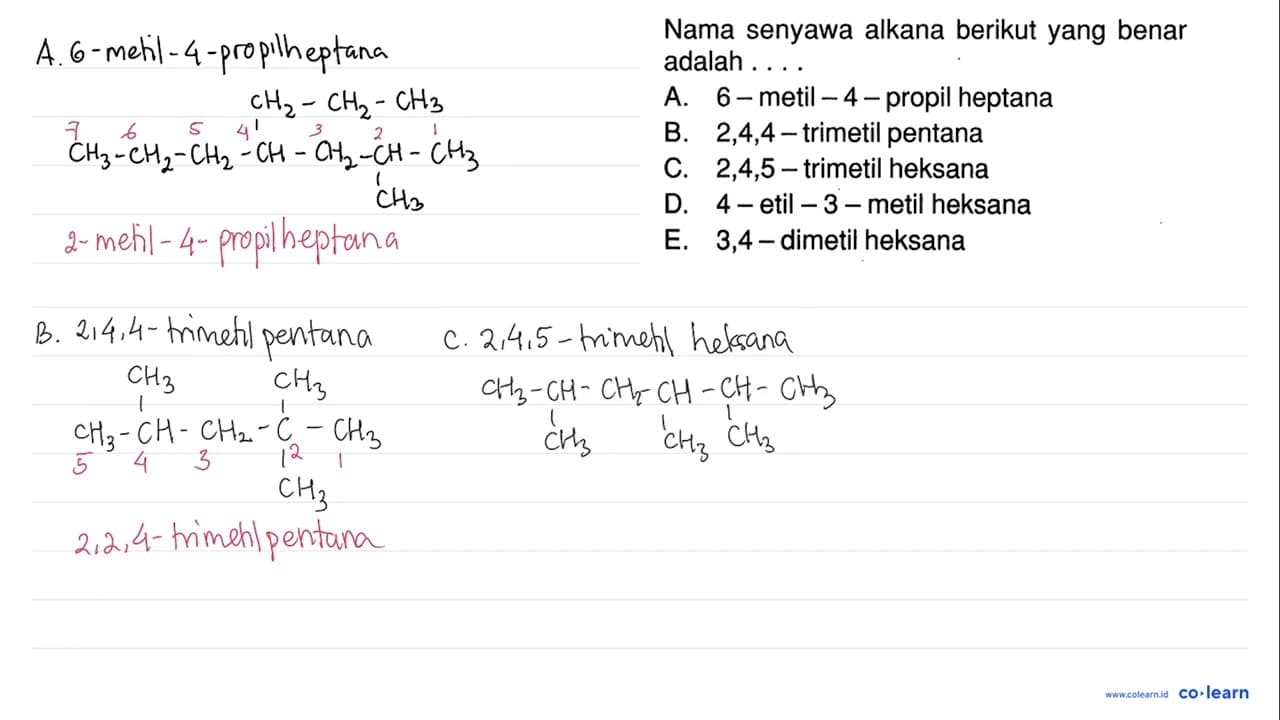 A. 6-metil-4-propilheptana
CH2 - CH2 - CH3
7 6 5 4 3 2 1
CH3-CH2-CH2-CH-CH2-CH-CH3
CH3
2-metil-4-propilheptana
Nama senyawa alkana berikut yang benar
adalah . . . .
A. 6 – metil – 4 – propil heptana
B. 2,4,4 – trimetil pentana
C. 2,4,5 – trimetil heksana
D. 4 – etil – 3 – metil heksana
E. 3,4 – dimetil heksana
B. 2,4,4-trimetil pentana
CH3 CH3
CH3-CH-CH2-C-CH3
5 4 3 2 1
CH3
2,2,4-trimetilpentana
C. 2,4,5-trimetil heksana
CH3-CH-CH2-CH-CH-CH3
CH3 CH3 CH3
www.colearn.id co·learn